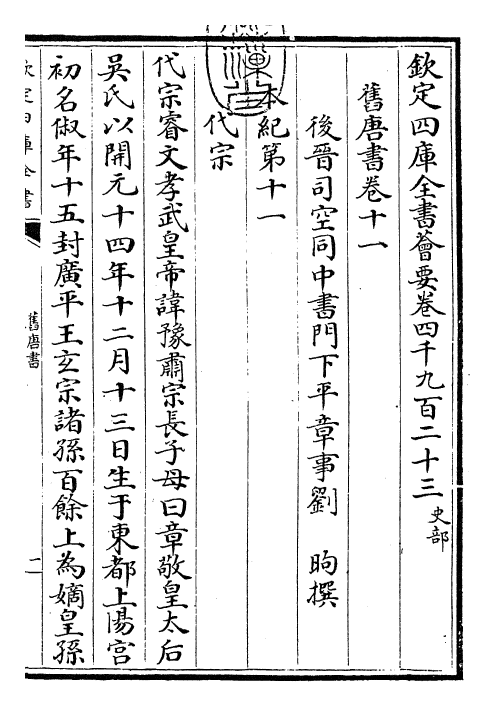 欽定四庫全書薈要卷四千九百二十三 史部
舊唐書卷十一
後晉司空同中書門下平章事劉 昫撰
本紀第十一
代宗
代宗睿文孝武皇帝諱豫肅宗長子母曰章敬皇太后
吳氏以開元十四年十二月十三日生于東都上陽宮
初名俶年十五封廣平王玄宗諸孫百餘上為嫡皇孫
欽定四庫全書
舊唐書